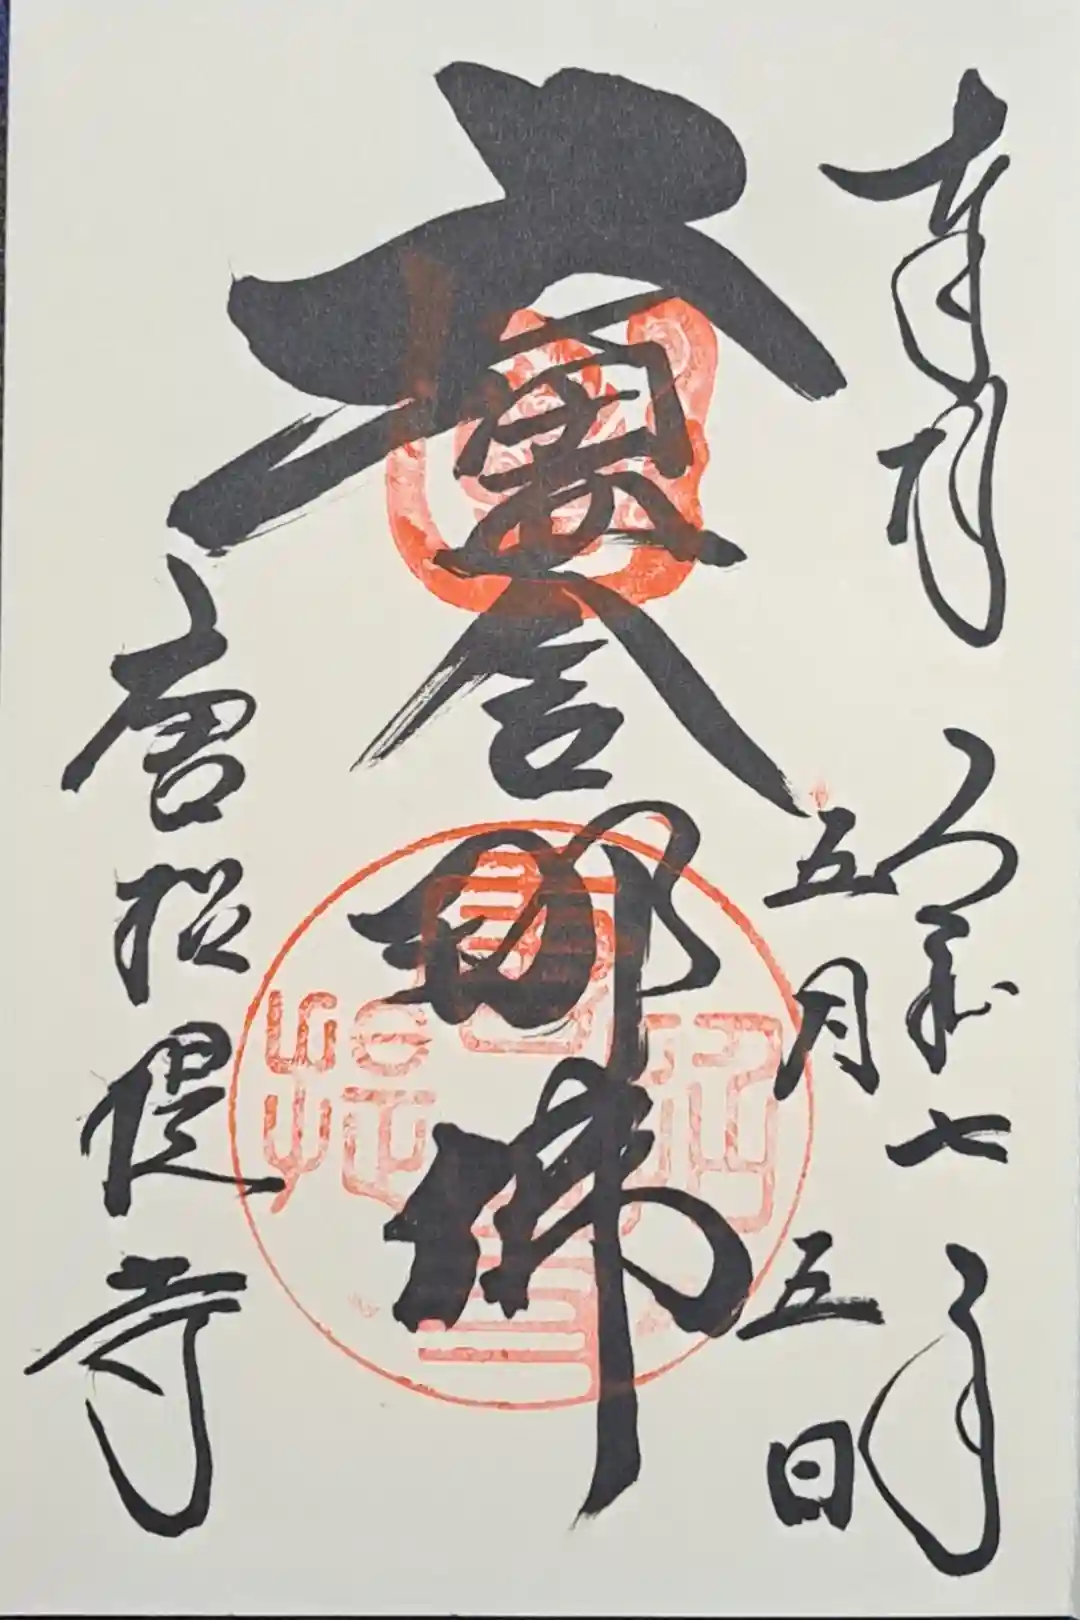 奉拝
令和七年
五月五日
盧舎那佛
唐招提寺